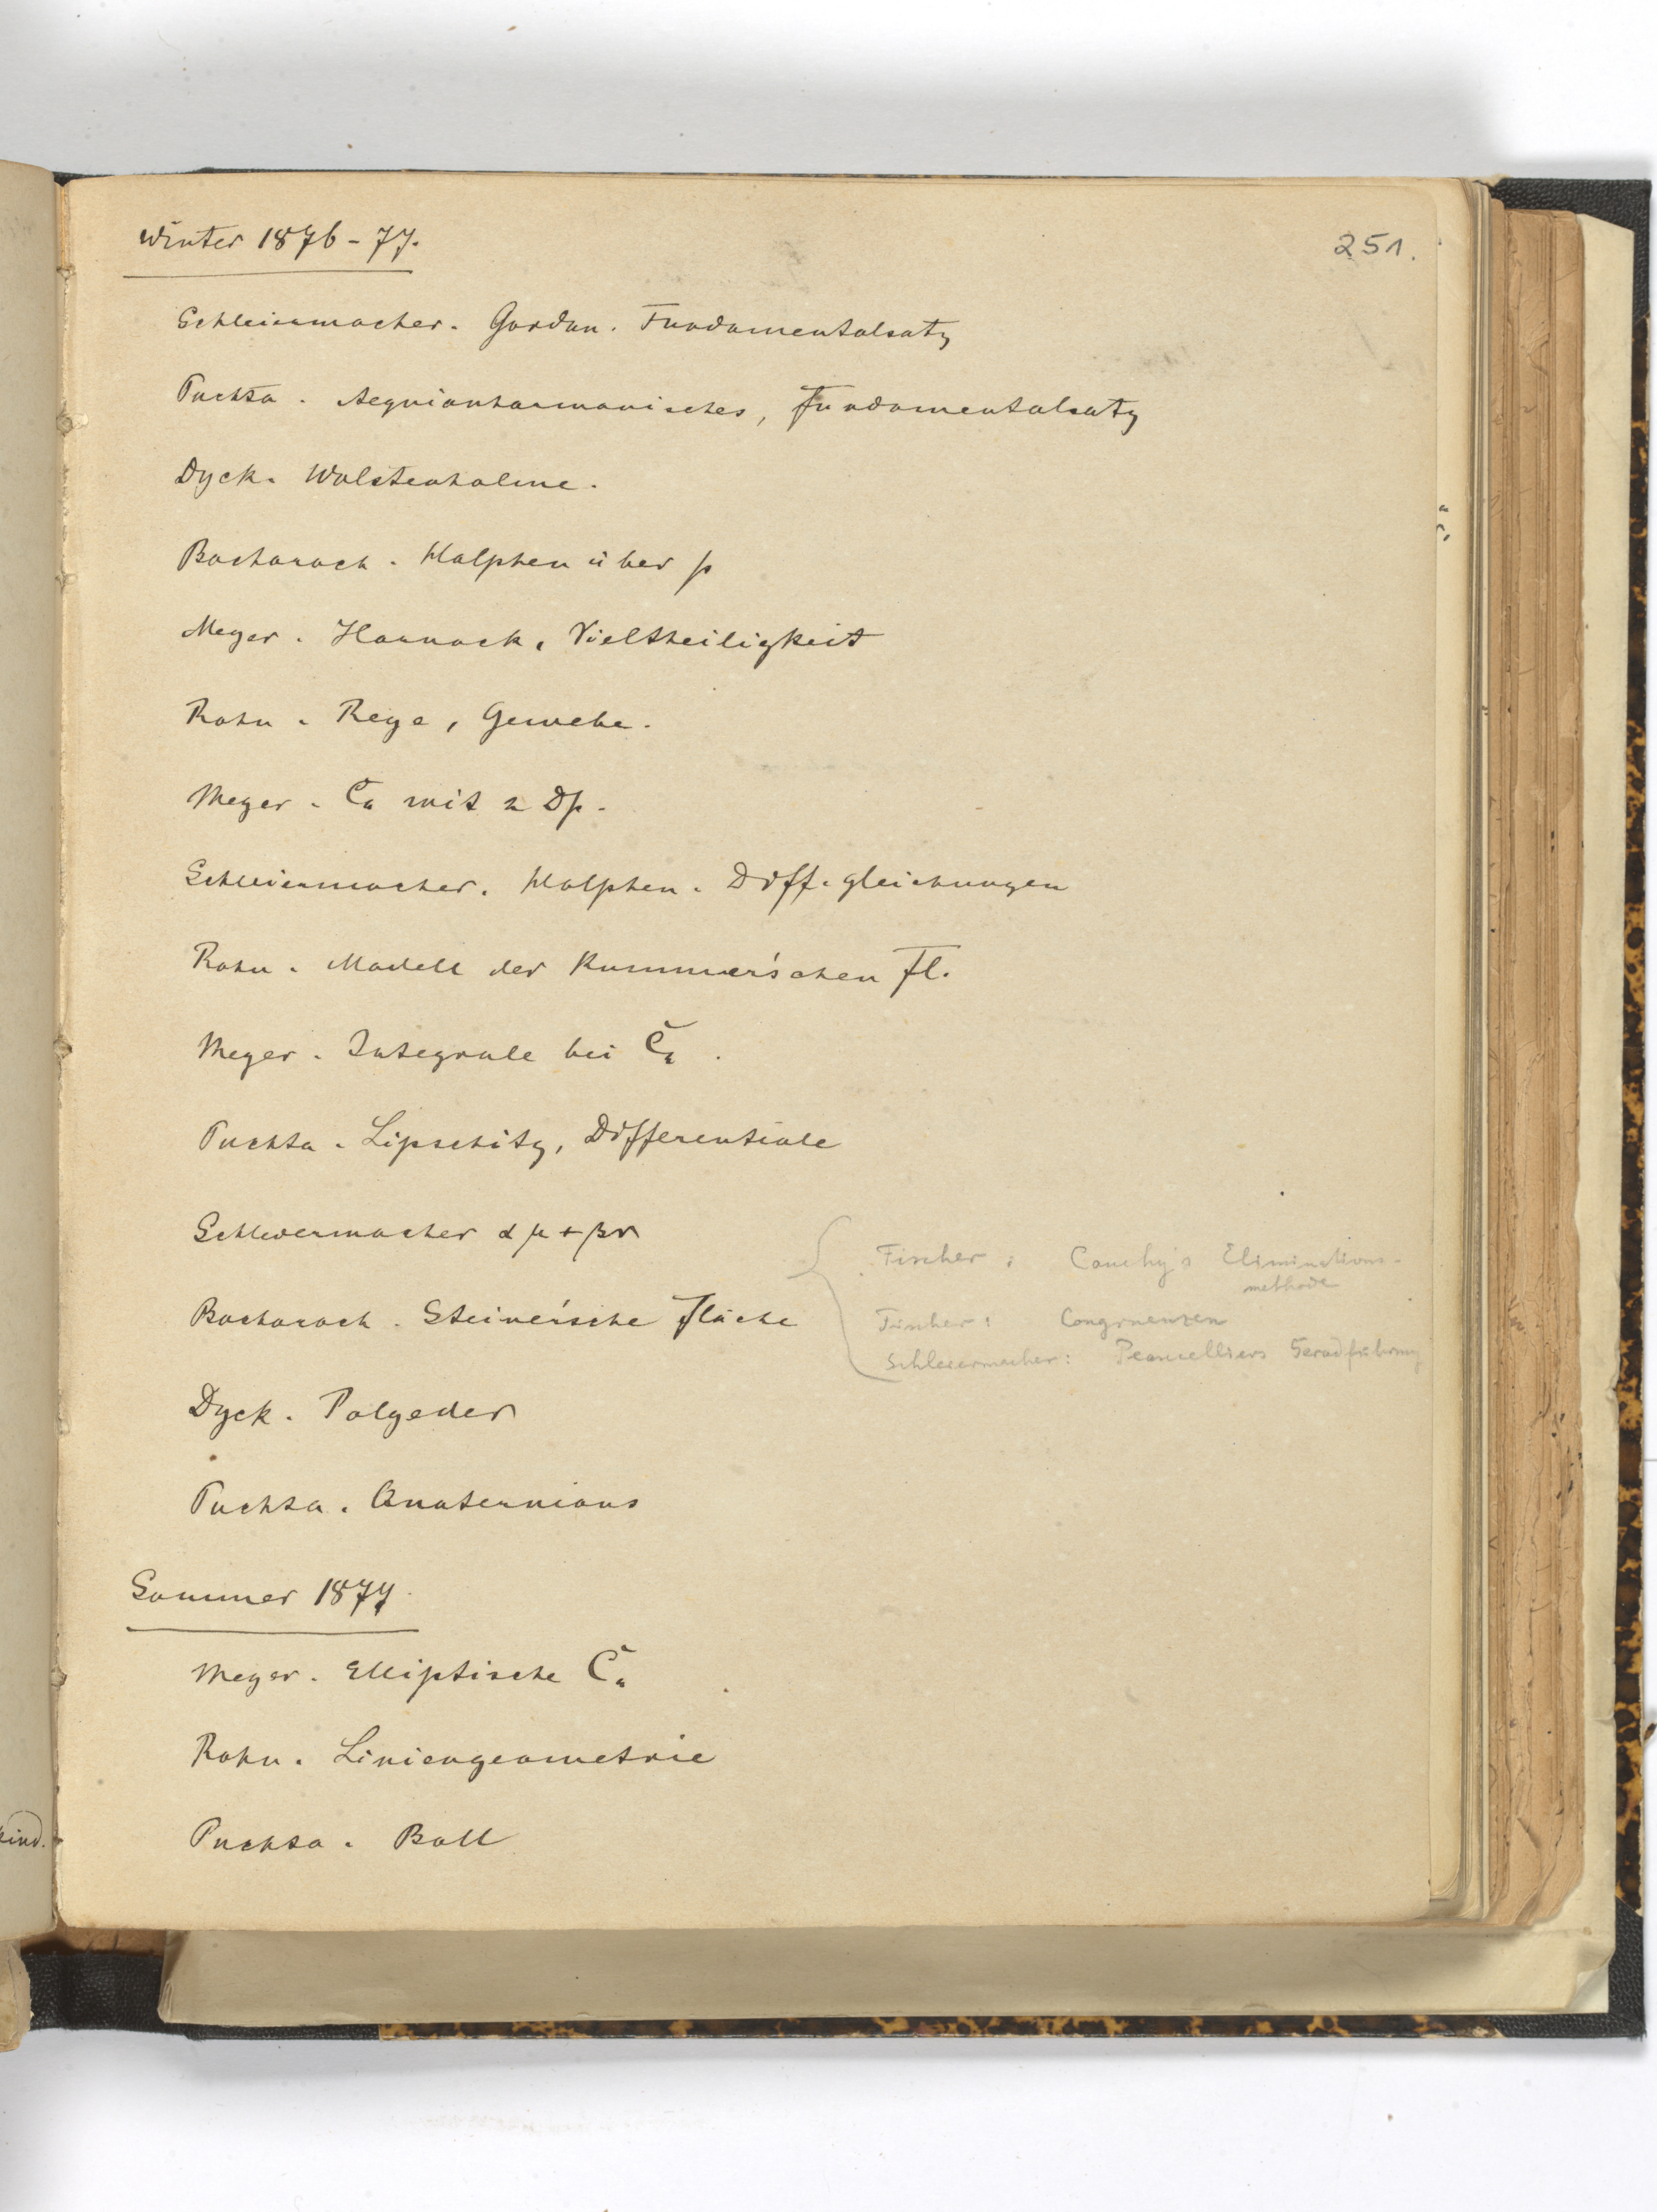 Winter 1876-77.
251.
Schleiermacher. Gordan. Fundamentalsatz
Puchta. Aequianharmonisches, Fundamentalsatz
Dyck. Wolstenholme.
Bacharach. Halphen über p
Meyer. Harnack, Vieltheiligkeit
Rohn. Reye, Gewebe.
Meyer. Cn mit 2 Dp.
Schleiermacher. Halphen. Diff.gleichungen
Rohn. Modell der Kummer'schen Fl.
Meyer. Integrale bei
Puchta. Lipschitz, Differentiale
Schleiermacher αμ+βν
Fischer: Cauchy's Eliminations-
methode
Bacharach. Steiner'sche Fläche
Fischer: Congruenzen
Schleiermacher: Peaucelliers Geradführung
Dyck. Polyeder
Puchta. Quaternions
Sommer 1877.
Meyer. Elliptische
Rohn. Liniengeometrie
Puchta. Ball
kind.